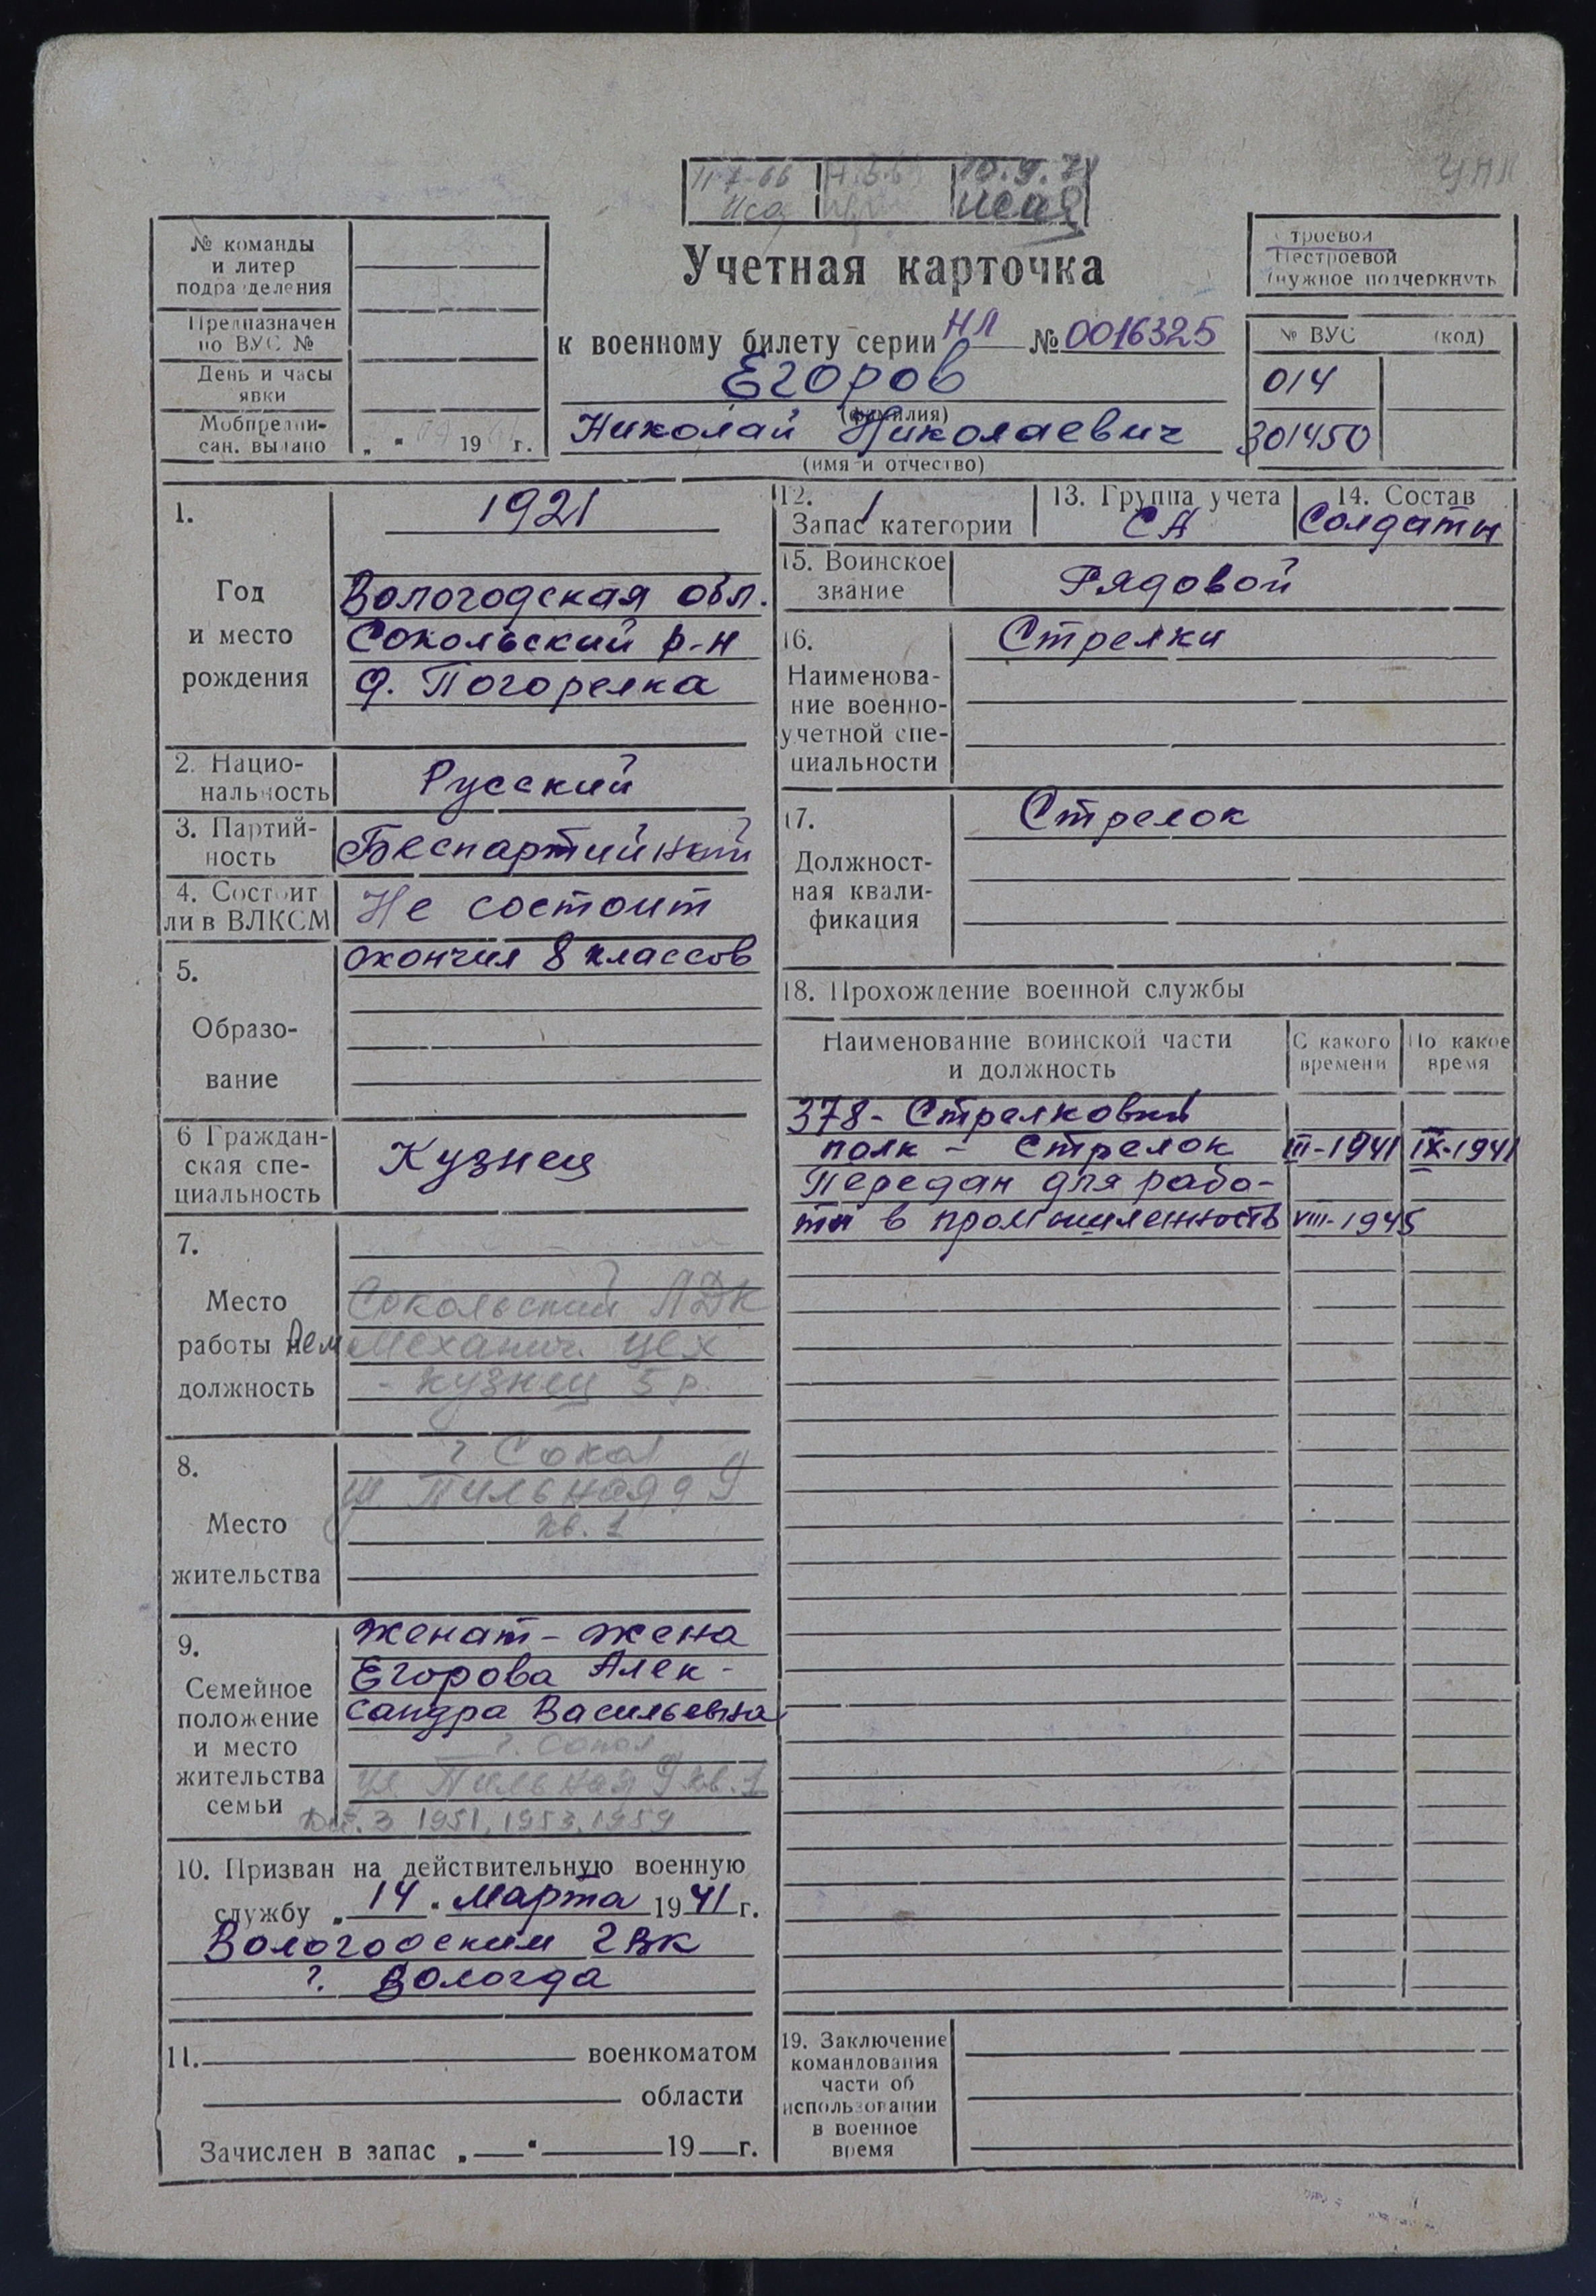 10.9.71
УПК
Учетная карточка
к военному билету серии НЛ № 0016325
Егоров
(фамилия)
Николай Николаевич
(имя и отчество)
№ команды
и литер
подразделения
Предназначен
по ВУС №
День и часы
явки
Мобпредпи-
сан. выдано
„ 19 г.
Строевой
Нестроевой
(нужное подчеркнуть
№ ВУС (код)
014
301450
1.
Год
и место
рождения
1921
Вологодская обл.
Сокольский р-н
д. Погорелка
2. Нацио-
нальность
Русский
3. Партий-
ность
Беспартийный
4. Состоит
ли в ВЛКСМ
Не состоит
5.
Образо-
вание
окончил 8 классов
6 Граждан-
ская спе-
циальность
Кузнец
7.
Место
работы и
должность
Сокольский ЛДК
Рем Механич. цех
- кузнец 5 р.
8.
Место
жительства
г Сокол
ул. Пильная д 9
кв. 1
9.
Семейное
положение
и место
жительства
семьи
женат - жена
Егорова Алек-
сандра Васильевна
г. Сокол
ул. Пильная 9 кв. 1
Дет. 3 1951, 1953, 1959
10. Призван на действительную военную
службу „14" Марта 1941 г.
Вологодским ГВК
г. Вологда
11. военкоматом
области
Зачислен в запас „ " 19 г.
12. 1
Запас категории
13. Группа учета
СА
14. Состав
Солдаты
15. Воинское
звание
Рядовой
16.
Наименова-
ние военно-
учетной спе-
циальности
Стрелки
17.
Должност-
ная квали-
фикация
Стрелок
18. Прохождение военной службы
Наименование воинской части
и должность
С какого
времени
По какое
время
378 - Стрелковый
полк - Стрелок III-1941 IX-1941
Передан для рабо-
ты в промышленность VIII-1945
19. Заключение
командования
части об
использовании
в военное
время